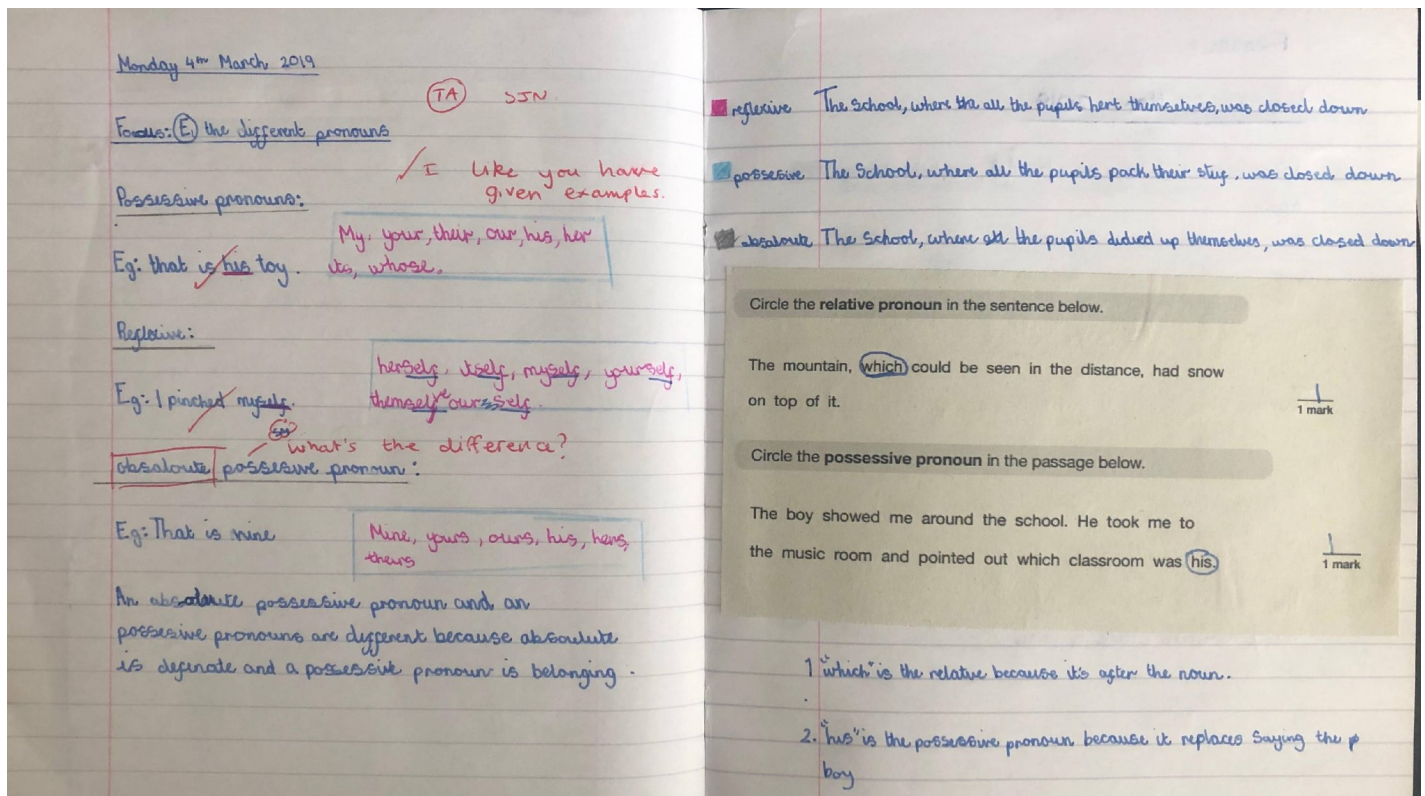 Monday 4th March 2019
TA SJN
Focus: E, the different pronouns
I like you have
given examples.
Possessive pronouns:
My, your, their, our, his, her
its, whose,
Eg: that is his toy.
Reflexive:
herself, itself, myself, yourself,
themself ourself.
Eg: I pinched myself.
What's the difference?
absaloute possesive pronoun:
Eg: That is mine
Mine, yours, ours, his, hers,
theirs
An absoloute possessive pronoun and an
possesive pronouns are different because absoulute
is definate and a possessive pronoun is belonging.
reflexive The School, where all the pupils hert themselves, was closed down
possesive The School, where all the pupils pack their stuf, was closed down
absaloute The School, where all the pupils up themselves, was closed down
Circle the relative pronoun in the sentence below.
The mountain, which could be seen in the distance, had snow
on top of it.
1
1 mark
Circle the possessive pronoun in the passage below.
The boy showed me around the school. He took me to
the music room and pointed out which classroom was his.
1
1 mark
1 "which" is the relative because it's after the noun.
2. "his" is the possessive pronoun because it replaces saying the
boy